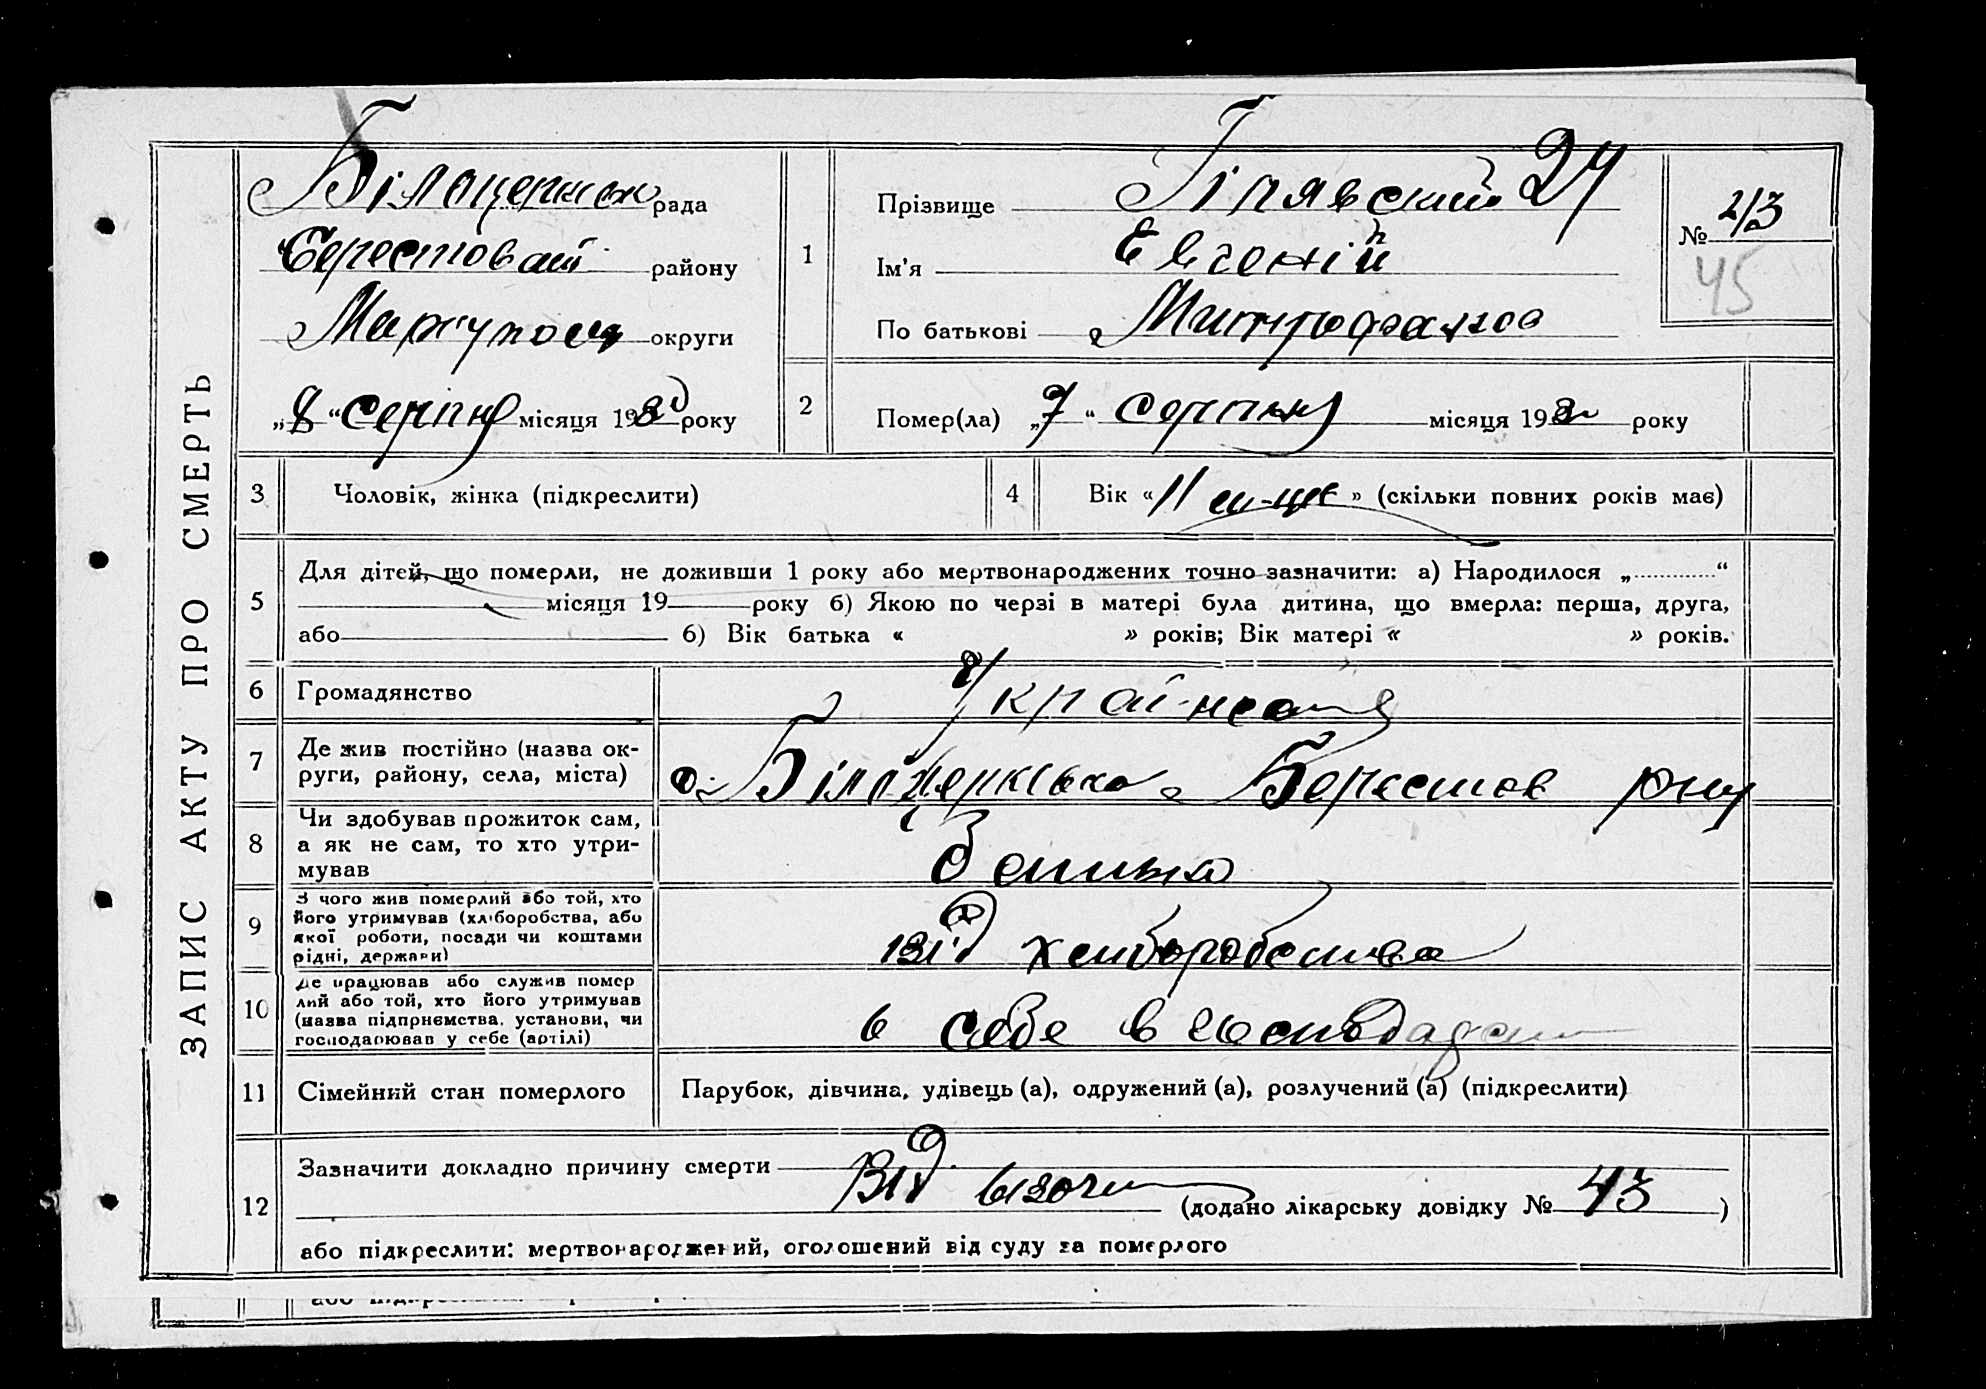 ЗАПИС АКТУ ПРО СМЕРТЬ
Білоцерков рада
Берестоваш району
Маріупол округи
„8“ серпня місяця 1930 року
1
Прізвище 24
Ім'я Евгеній
По батькові Митрофанов
№ 213
45
2
Помер(ла) „7“ серпня місяця 1930 року
3 Чоловік, жінка (підкреслити)
4 Вік «11 м-це» (скільки повних років має)
5
Для дітей, що померли, не доживши 1 року або мертвонароджених точно зазначити: а) Народилося „ “
місяця 19 року б) Якою по черзі в матері була дитина, що вмерла: перша, друга,
або б) Вік батька « » років; Вік матері « » років.
6 Громадянство Україн
7
Де жив постійно (назва ок-
руги, району, села, міста)
с. Білоцерківка Берестов р-ну
8
Чи здобував прожиток сам,
а як не сам, то хто утри-
мував
9
З чого жив померлий або той, хто
його утримував (хліборобства, або
якої роботи, посади чи коштами
рідні, держави)
від хліборобства
10
Де працював або служив помер
лий або той, хто його утримував
(назва підприємства, установи, чи
господарював у себе (артілі)
в себе в
11 Сімейний стан померлого Парубок, дівчина, удівець (а), одружений (а), розлучений (а) (підкреслити)
12
Зазначити докладно причину смерти Від
(додано лікарську довідку № 43 )
або підкреслити: мертвонароджений, оголошений від суду за померлого